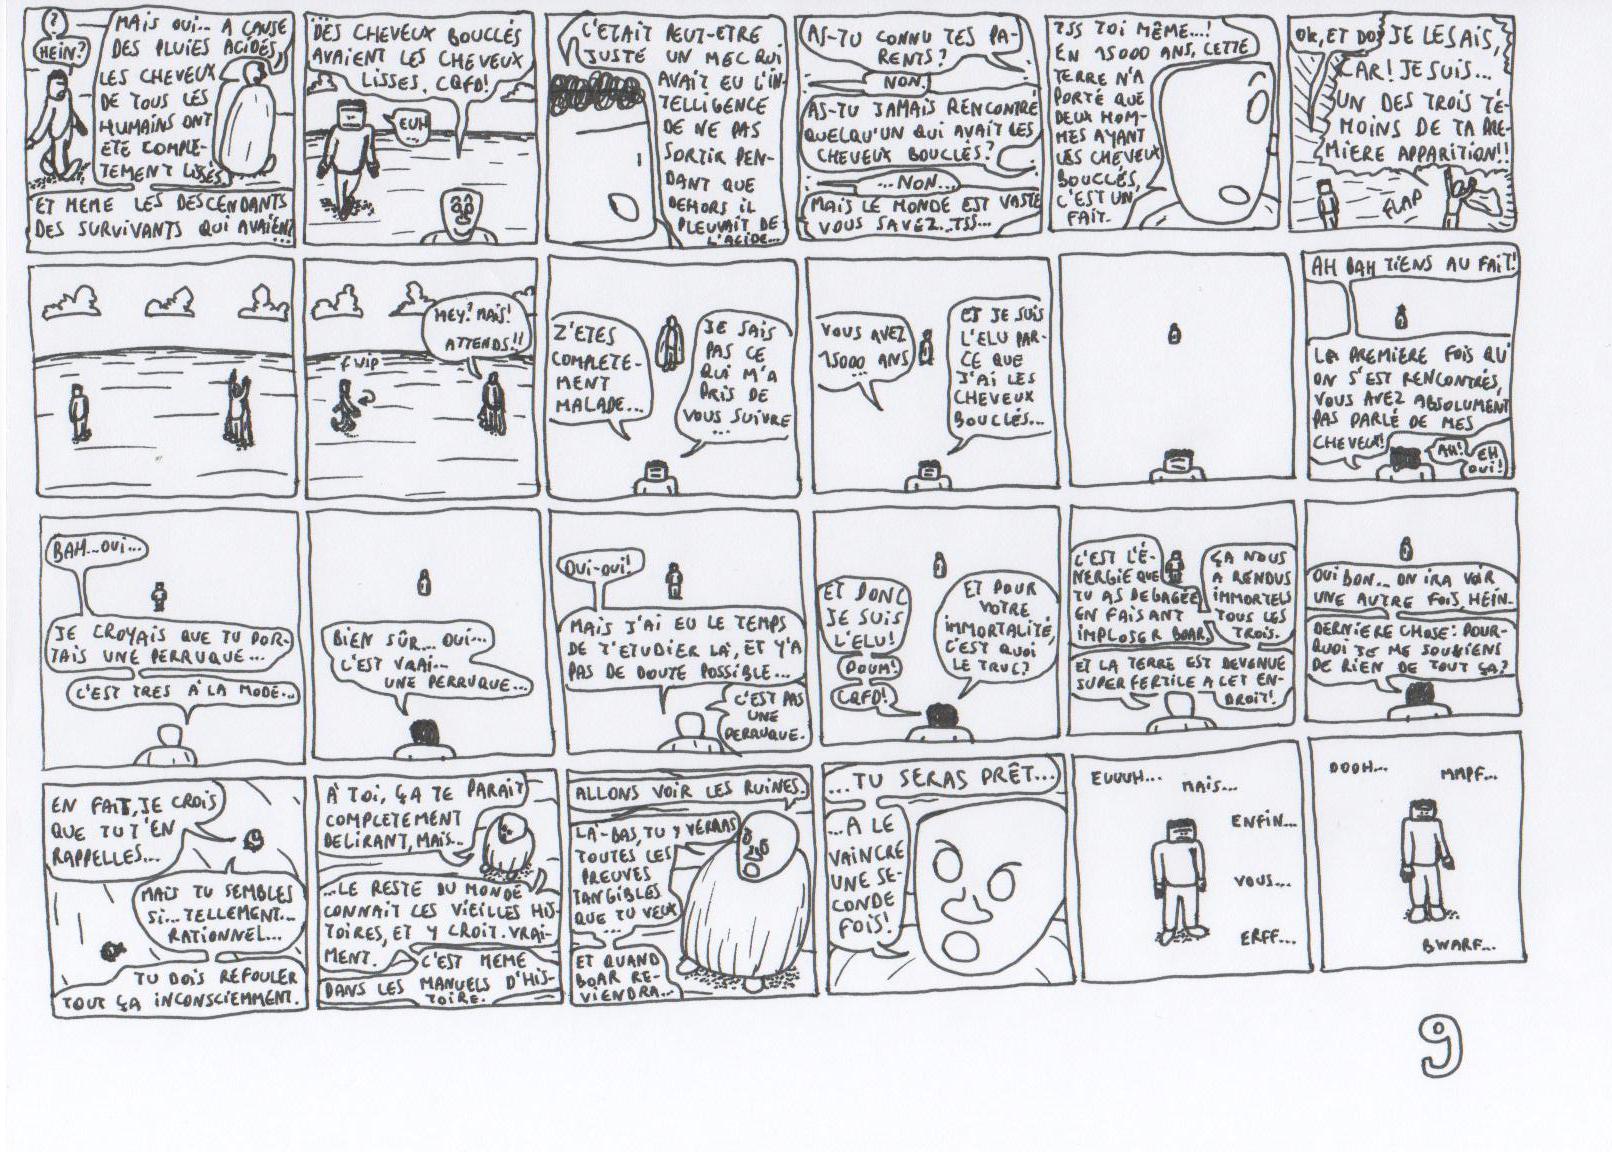 ?
HEIN?
MAIS OUI... A CAUSE
DES PLUIES ACIDES,
LES CHEVEUX
DE TOUS LES
HUMAINS ONT
ETE COMPLE-
TEMENT LISSES.
ET MEME LES DESCENDANTS
DES SURVIVANTS QUI AVAIENT
...
DES CHEVEUX BOUCLÉS
AVAIENT LES CHEVEUX
LISSES. CQFD!
EUH
C'ETAIT PEUT-ETRE
JUSTE UN MEC QUI
AVAIT EU L'IN-
TELLIGENCE
DE NE PAS
SORTIR PEN-
DANT QUE
DEHORS IL
PLEUVAIT DE
L'ACIDE...
AS-TU CONNU TES PA-
RENTS?
NON!
AS-TU JAMAIS RENCONTRÉ
QUELQU'UN QUI AVAIT LES
CHEVEUX BOUCLÉS?
...NON...
MAIS LE MONDE EST VASTE
VOUS SAVEZ...TSS...
TSS TOI MÊME...!
EN 15000 ANS, CETTE
TERRE N'A
PORTÉ QUE
DEUX HOM-
MES AYANT
LES CHEVEUX
BOUCLÉS,
C'EST UN
FAIT.
OK, ET DO
JE LE SAIS,
CAR! JE SUIS...
UN DES TROIS TÉ-
MOINS DE TA PRE-
MIÈRE APPARITION!!
FLAP
FWIP
HEY? MAIS!
ATTENDS!!
Z'ETES
COMPLETE-
MENT
MALADE...
JE SAIS
PAS CE
QUI M'A
PRIS DE
VOUS SUIVRE
...
VOUS AVEZ
15000 ANS
ET JE SUIS
L'ELU PAR-
CE QUE
J'AI LES
CHEVEUX
BOUCLÉS...
AH BAH TIENS AU FAIT!
LA PREMIERE FOIS QU'
ON S'EST RENCONTRÉS,
VOUS AVEZ ABSOLUMENT
PAS PARLÉ DE MES
CHEVEUX!
AH!
EH
OUI!
BAH...OUI...
JE CROYAIS QUE TU POR-
TAIS UNE PERRUQUE...
C'EST TRES À LA MODE...
BIEN SÛR... OUI...
C'EST VRAI...
UNE PERRUQUE...
OUI-OUI!
MAIS J'AI EU LE TEMPS
DE T'ETUDIER LÀ, ET Y'A
PAS DE DOUTE POSSIBLE...
C'EST PAS
UNE
PERRUQUE.
ET DONC
JE SUIS
L'ELU!
POUM!
CQFD!
ET POUR
VOTRE
IMMORTALITÉ,
C'EST QUOI
LE TRUC?
C'EST L'É-
NERGIE QUE
TU AS DEGAGÉE
EN FAISANT
IMPLOSER BOAR,
ÇA NOUS
A RENDUS
IMMORTELS
TOUS LES
TROIS.
ET LA TERRE EST DEVENUE
SUPER FERTILE A CET EN-
DROIT!
OUI BON... ON IRA VOIR
UNE AUTRE FOIS, HEIN.
DERNIERE CHOSE: POUR-
QUOI JE ME SOUVIENS
DE RIEN DE TOUT ÇA?
EN FAIT, JE CROIS
QUE TU T'EN
RAPPELLES...
MAIS TU SEMBLES
SI... TELLEMENT...
RATIONNEL...
TU DOIS REFOULER
TOUT ÇA INCONSCIEMMENT.
À TOI, ÇA TE PARAIT
COMPLETEMENT
DELIRANT, MAIS...
...LE RESTE DU MONDE
CONNAIT LES VIEILLES HIS-
TOIRES, ET Y CROIT. VRAI-
MENT.
C'EST MEME
DANS LES MANUELS D'HIS-
TOIRE.
ALLONS VOIR LES RUINES.
LÀ-BAS, TU Y VERRAS
TOUTES LES
PREUVES
TANGIBLES
QUE TU VEUX
...
ET QUAND
BOAR RE-
VIENDRA...
...TU SERAS PRÊT...
...A LE
VAINCRE
UNE SE-
CONDE
FOIS!
EUUUH...
MAIS...
ENFIN...
VOUS...
ERFF...
OOOH...
MMPF...
BWARF...
9